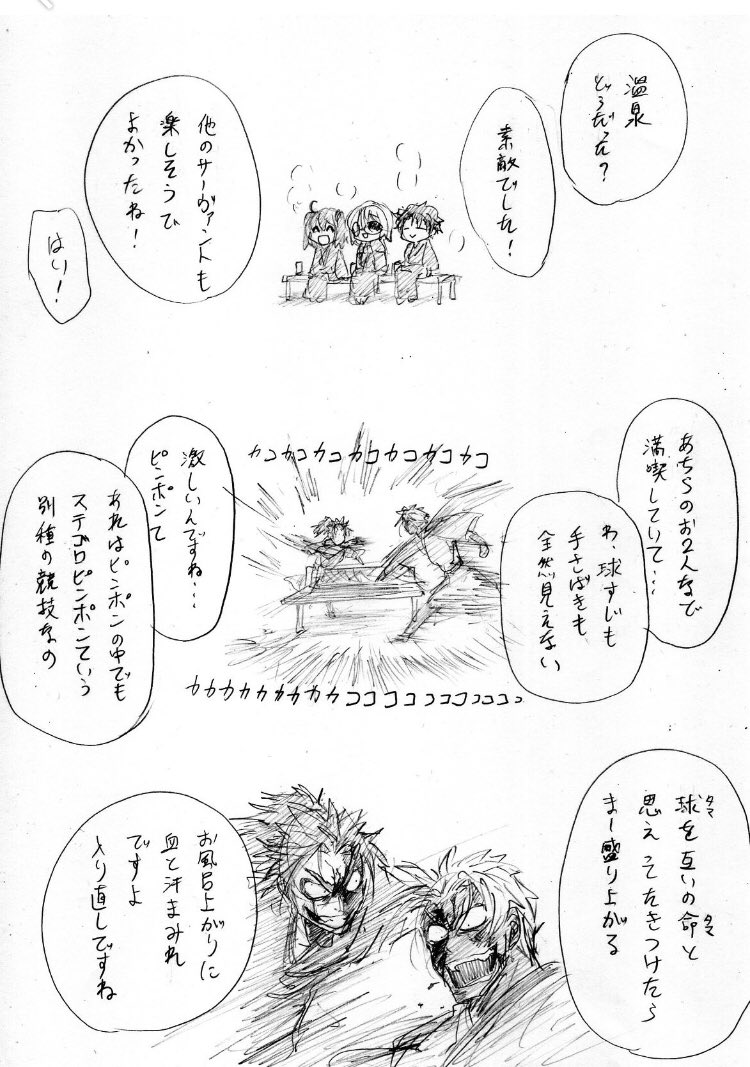 温泉
どうだった？
素敵でした！
他のサーヴァントも
楽しそうで
よかったね！
はい！
あちらのお2人なんて
満喫していて…
わ、球すじも
手さばきも
全然見えない
カコカコカコカコカコカコ
激しいんですね…
ピンポンて
あれはピンポンの中でも
ステゴロピンポンていう
別種の競技なの
カカカカカカカカカココココココココ
球を互いの命と
タマ
タマ
思えってたきつけたら
まー盛り上がる
お風呂上がりに
血と汗まみれ
ですよ
入り直しですね